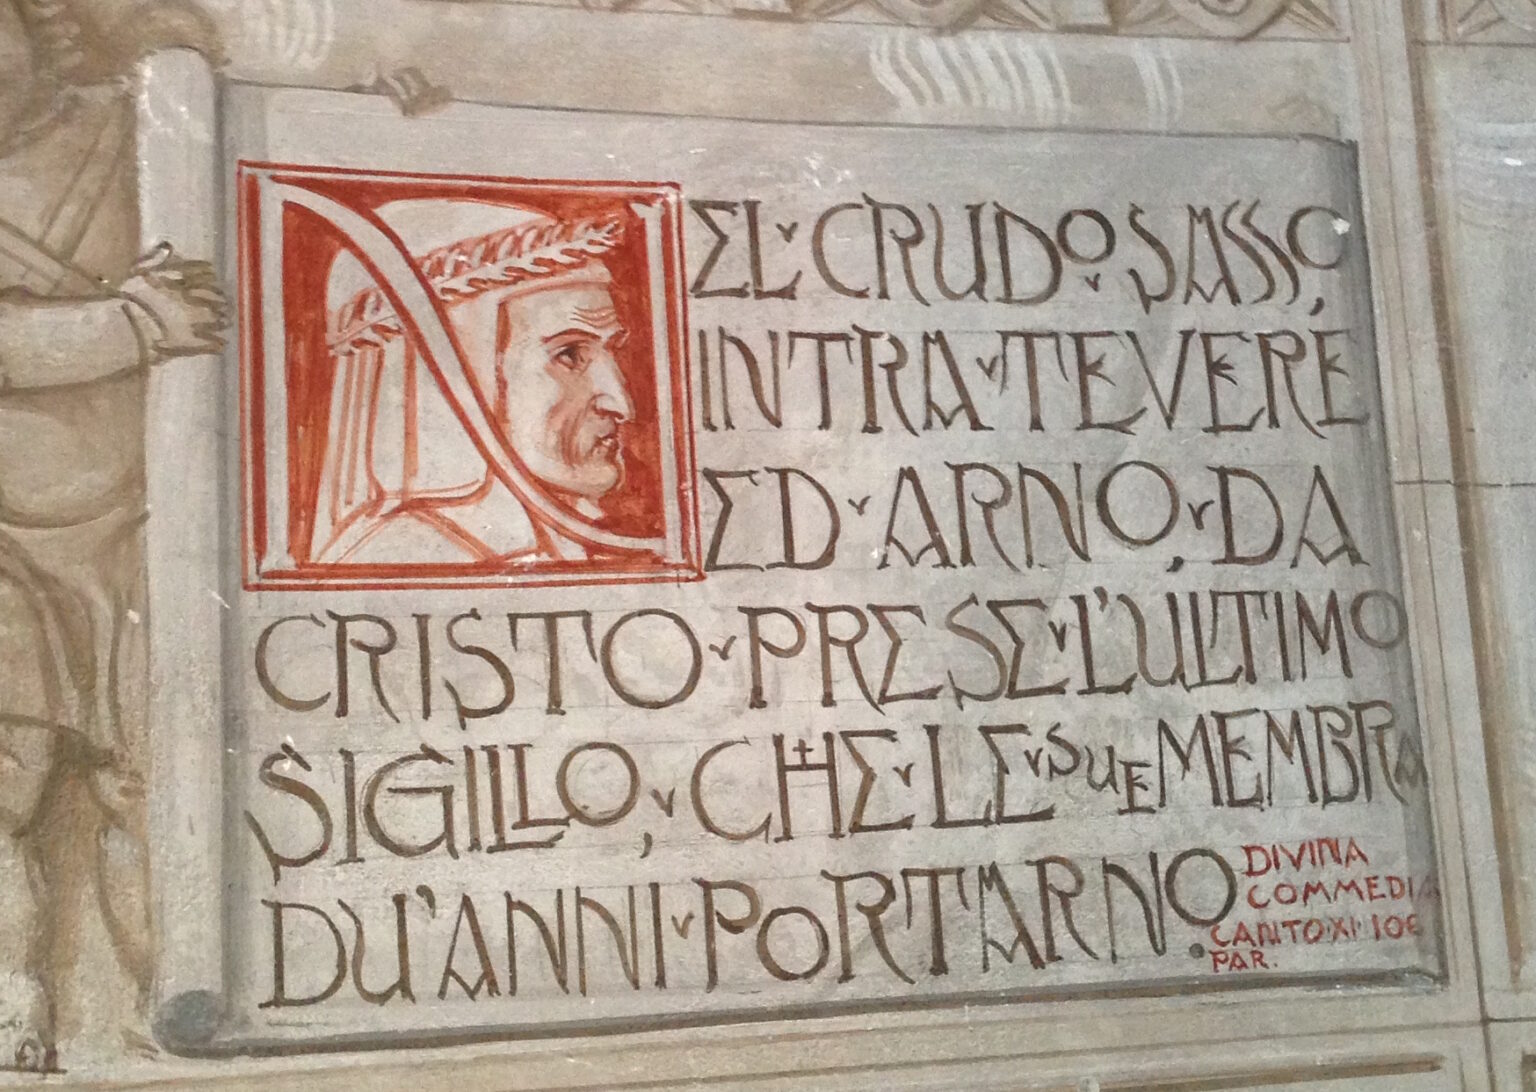 NEL CRUDO SASSO,
INTRA TEVERE
ED ARNO, DA
CRISTO PRESE L'ULTIMO
SIGILLO, CHE LE SUE MEMBRA
DU'ANNI PORTARNO.
DIVINA
COMMEDIA
CANTO XI 106
PAR.